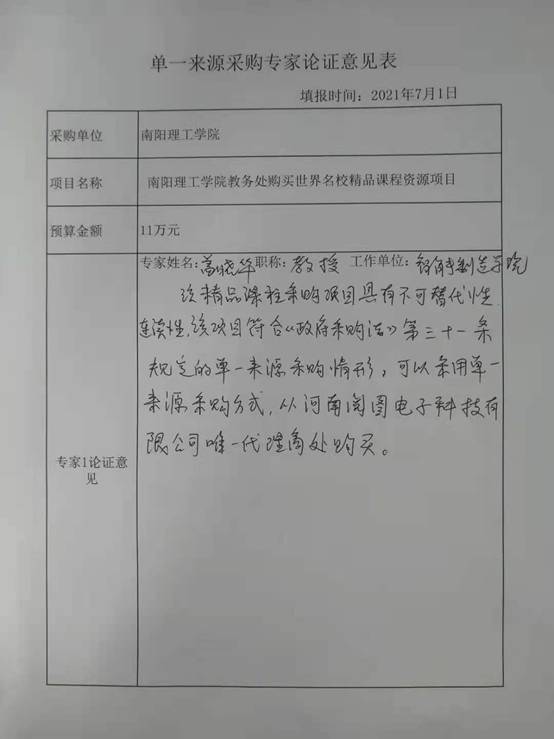 单一来源采购专家论证意见表
填报时间：2021年7月1日
采购单位
南阳理工学院
项目名称
南阳理工学院教务处购买世界名校精品课程资源项目
预算金额
11万元
专家1论证意
见
专家姓名:高晓华职称:教授 工作单位:智能制造学院
该精品课程采购项目具有不可替代性
连续性,该项目符合《政府采购法》第三十一条
规定的单一来源采购情形,可以采用单一
来源采购方式,从河南阅图电子科技有
限公司唯一代理商处购买。